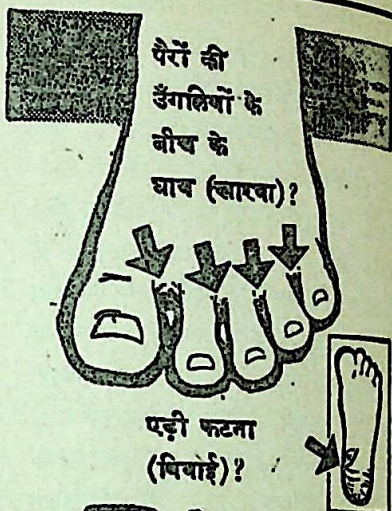 पैरों की
उँगलियों के
बीच के
घाव (खारवा)?
एड़ी फटना
(बिवाई)?